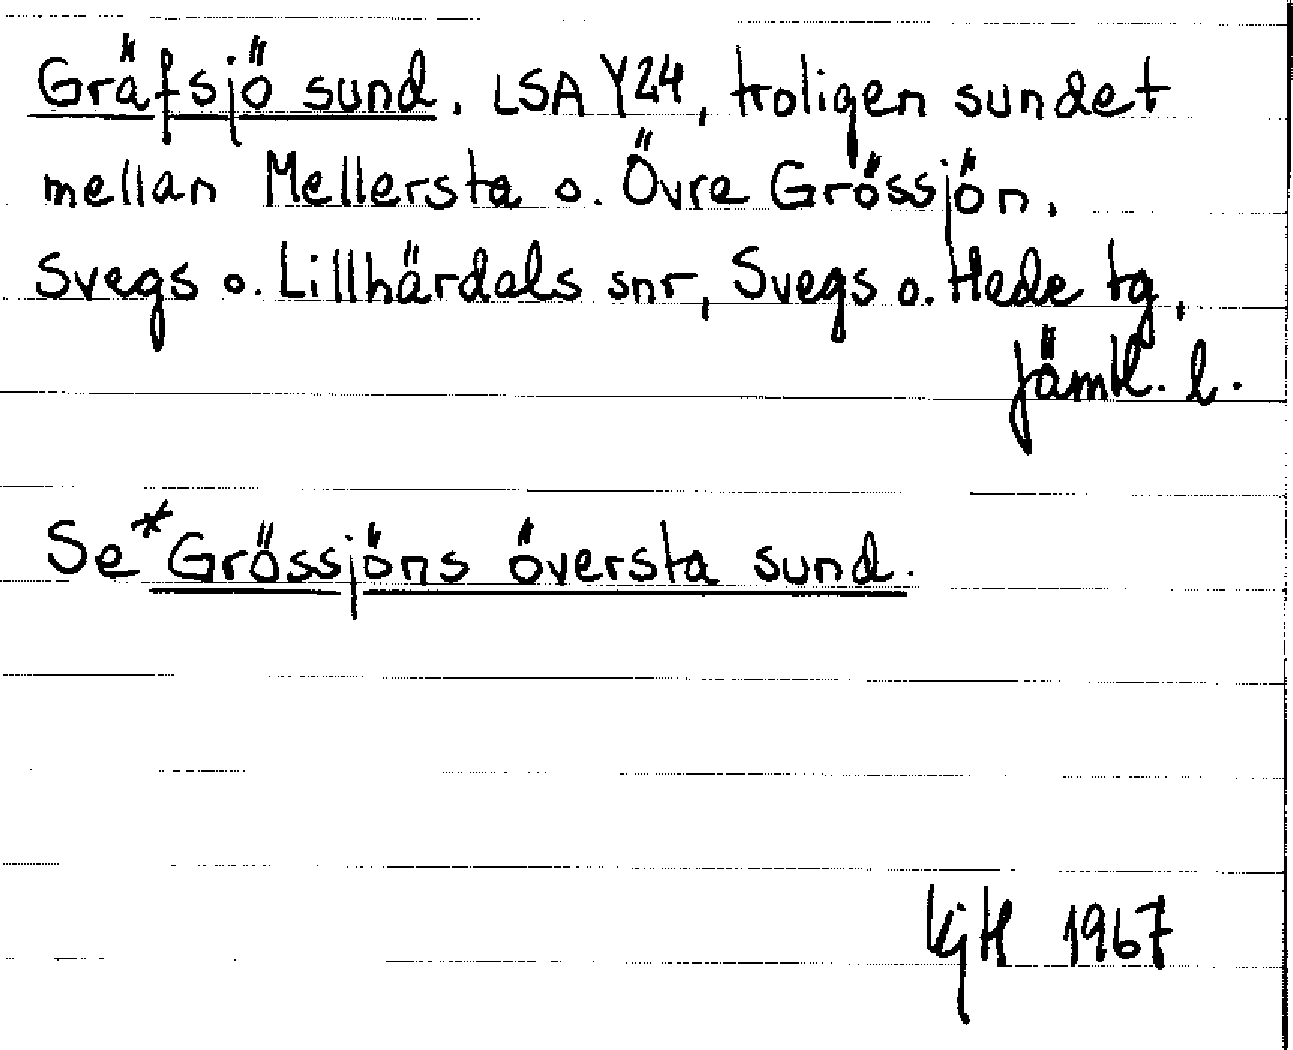 Gräfsjö sund. LSA Y24, troligen sundet
mellan Mellersta o. Övre Grössjön.
Svegs o. Lillhärdals snr, Svegs o. Hede tg,
Jämtl. l.
Se *Grössjöns översta sund.
KjH 1967